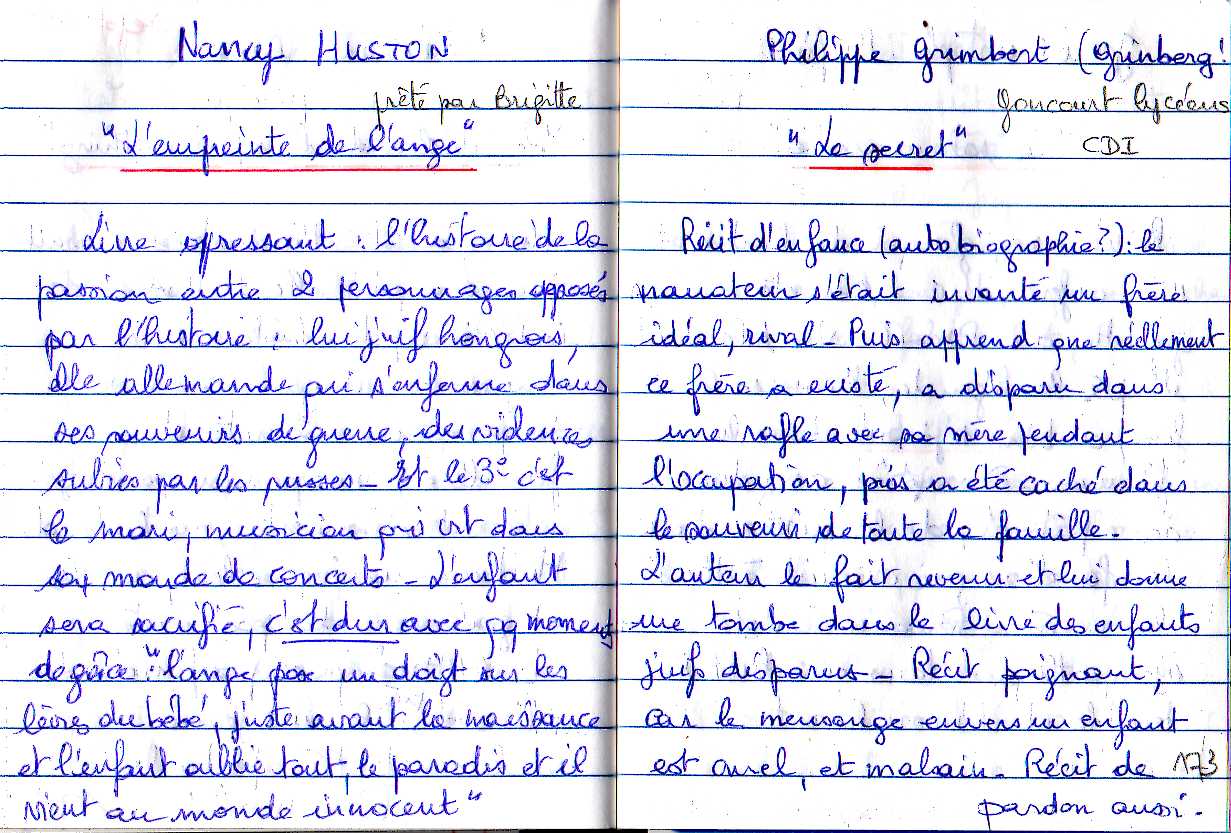 Nancy HUSTON
prêté par Brigitte
"L'empreinte de l'ange"
Livre opressant : l'histoire de la
passion entre 2 personnages opposés
par l'histoire : lui juif hongrois,
elle allemande qui s'enferme dans
ses souvenirs de guerre, des violences
subies par les russes - Et le 3e c'est
le mari, musicien qui vit dans
son monde de concerts - L'enfant
sera sacrifié, c'est dur avec qq moments
de grâce "l'ange pose un doigt sur les
lèvres du bébé, juste avant la naissance
et l'enfant oublie tout, le paradis et il
vient au monde innocent"
Philippe Grimbert (Grinberg!
Goncourt lycéens
"Le secret" CDI
Récit d'enfance (autobiographie?) : le
narrateur s'était inventé un frère
idéal, rival - Puis apprend que réellement
ce frère a existé, a disparu dans
une rafle avec sa mère pendant
l'occupation, puis a été caché dans
le souvenir de toute la famille.
L'auteur le fait revenir et lui donne
une tombe dans le livre des enfants
juifs disparus - Récit poignant,
car le mensonge envers un enfant
est cruel, et malsain. Récit de 173
pardon aussi.